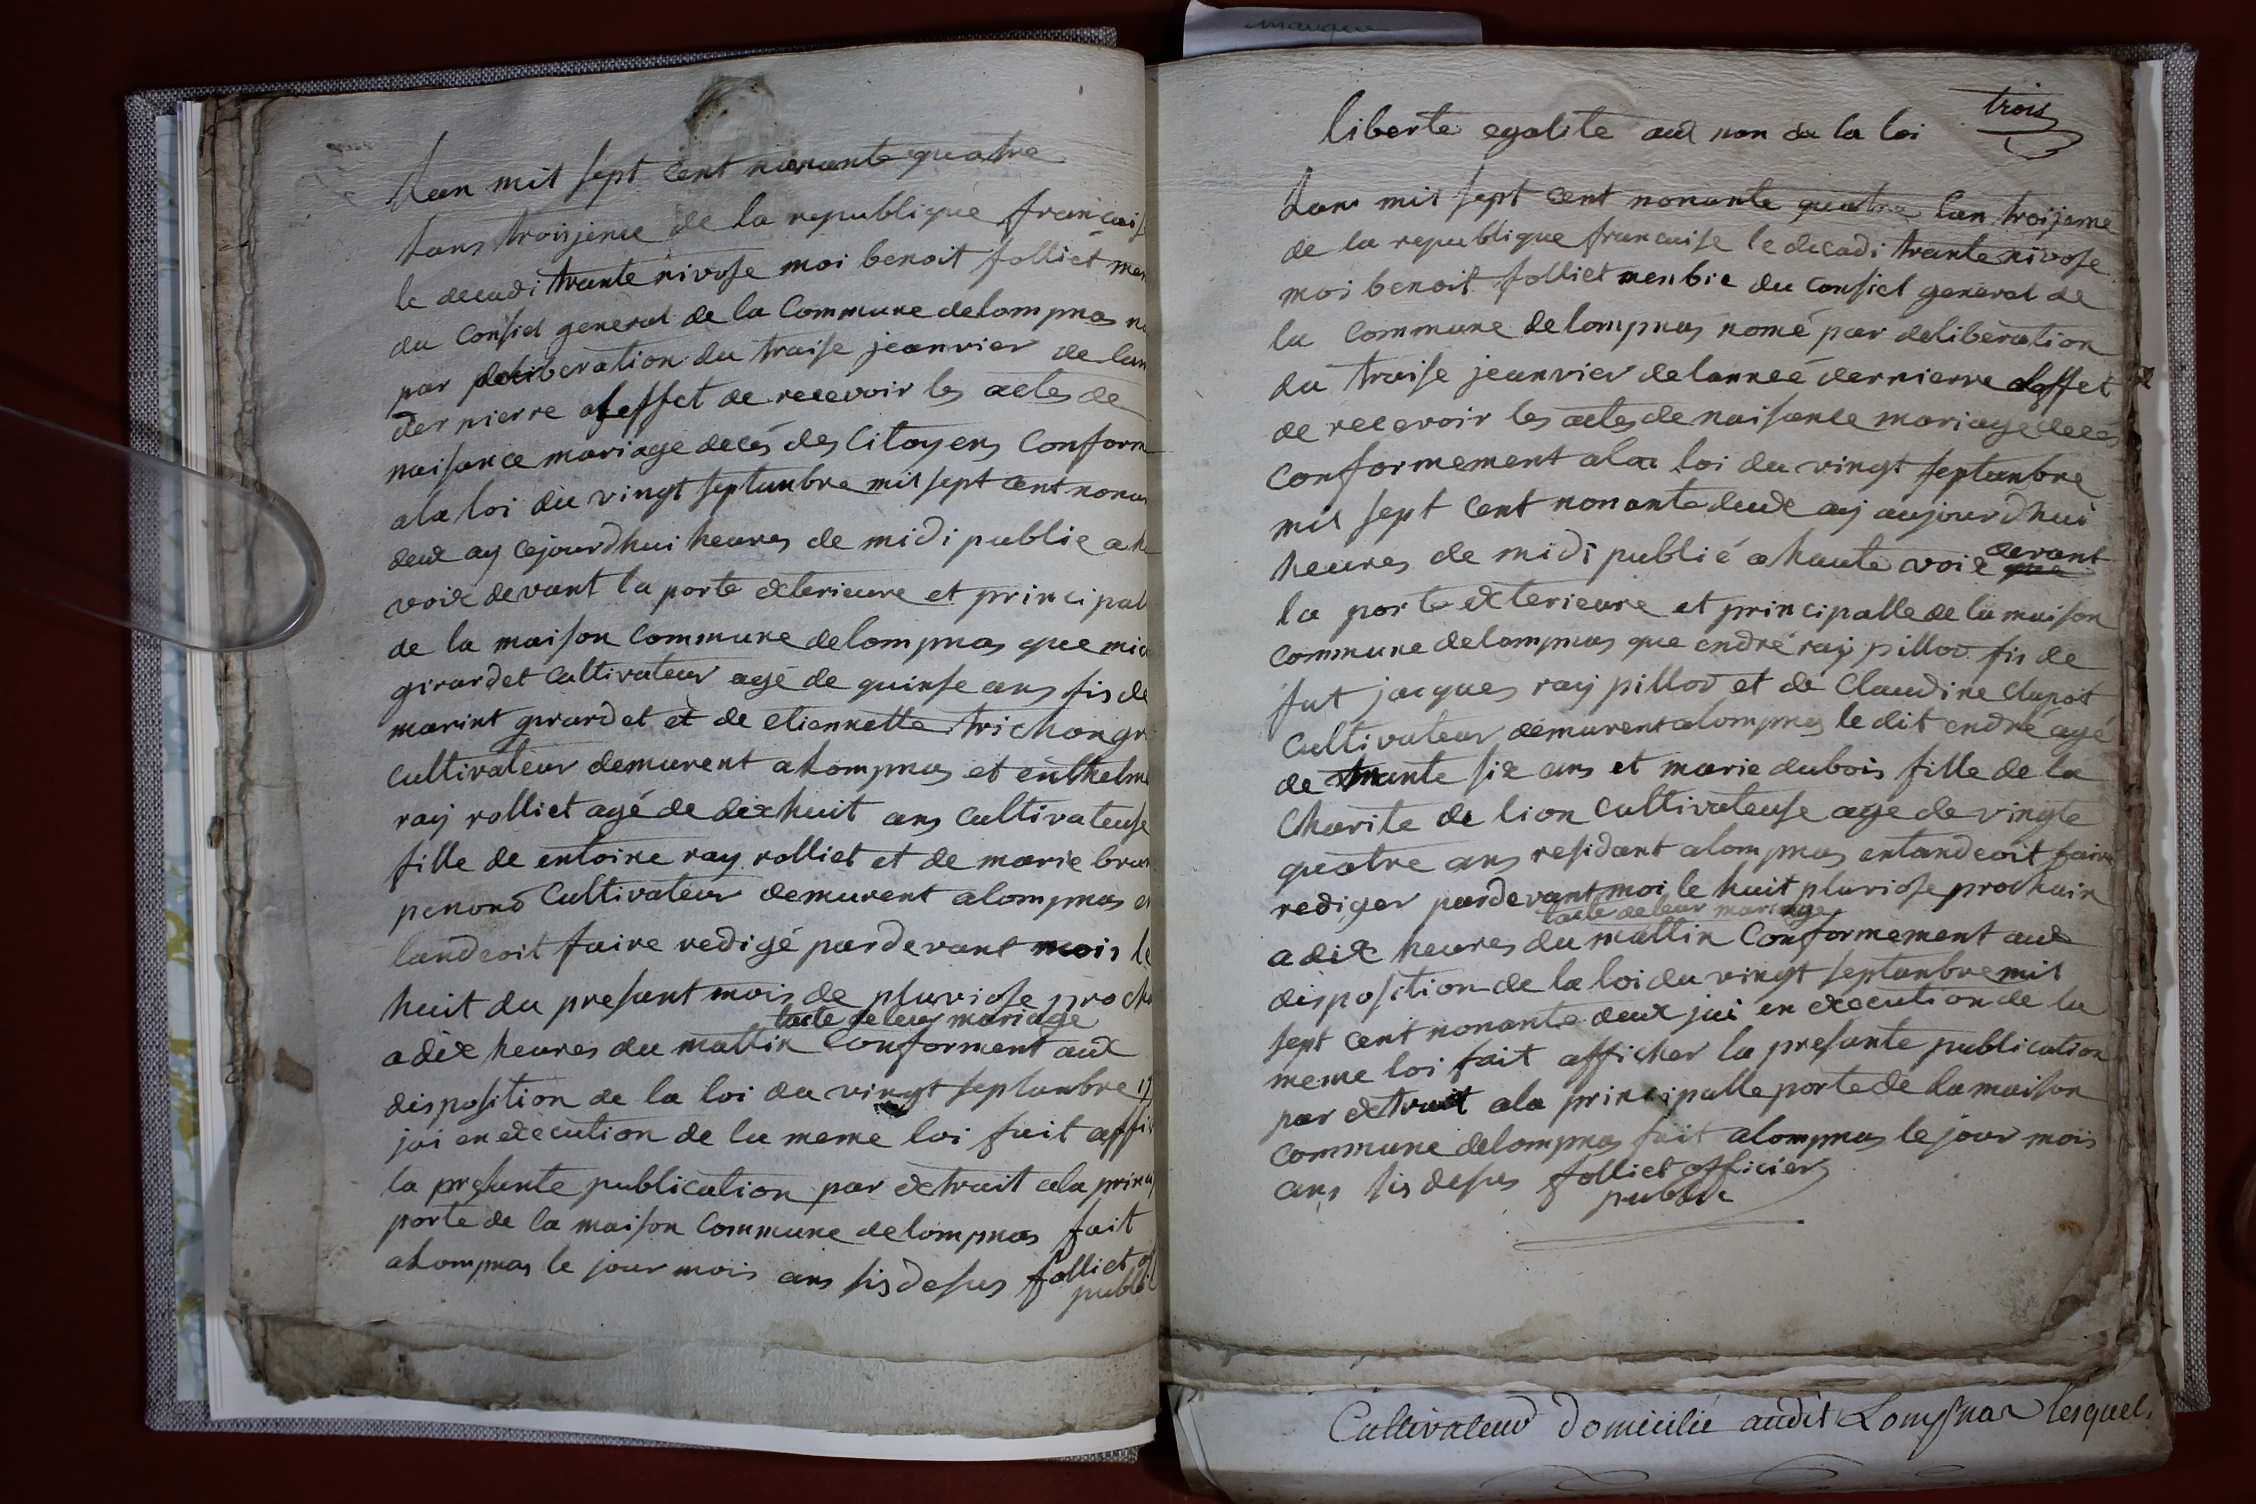 Lan mil sept cent nonante quatre
Lans troisieme de la republique francais
le decadi trante nivose moi benoit folliet mem
du consiel general de la Commune delompnas no
par deliberation du traise jeanvier de lann
dernierre aleffet de recevoir les actes de
naisance mariage deces des Citoyens Conform
ala loi du vingt septanbre mil sept cent nonan
deux ay cejourdhui heures de midi publie a h
voix devant la porte exterieure et principal
de la maison Commune delompnas que mic
girardet Cultivateur agé de quinse ans fis de
marint girardet et de etiennette trichon gr
Cultivateur demurent a Lompnas et enthelme
ray rolliet agé de dixhuit ans Cultivateuse
fille de entoine ray rolliet et de marie brun
penond Cultivateur demurent alompnas en
landeoit faire redigé pardevant mois le
huit du presant mois de pluviose procha
lacte de leur mariage
a dix heures du mattin Conforment aux
disposition de la loi du vingt septanbre 17
jai en execution de la meme loi fait affi
la presante publication par extrait ala princi
porte de la maison Commune delompnas fait
aLompnas le jour mois ans sis desus folliet of
public
trois
liberte egalite aux non de la loi
Lans mil sept cent nonante quatre lan troisieme
de la republique francaise le decadi trante nivose
moi benoit folliet menbie du consiel general de
la Commune delompnas nomé par deliberation
du traise jeanvier delanneé dernierre aleffet
de recevoir les actes de naisance mariage deces
conformement ala loi du vingt septanbre
mil sept cent nonante deux ay aujourdhui
heures de midi publié a haute voix que devant
la porte exterieure et principalle de la maison
commune delompnas que endré ray pillod fis de
fut jacques ray pillod et de Claudine Clapot
Cultivateur demurent alompnas le dit endré agé
de trante six ans et marie dubois fille de la
Charite de lion Cultivateuse agé de vingte
quatre ans residant alompnas entandeoit faire
rediger pardevant moi le huit pluviose prochain
lacte de leur mariage
a dix heures du mattin Conformement aux
disposition de la loi du vingt septanbre mil
sept cent nonante deux jai en execution de la
meme loi fait afficher la presante publication
par extrait ala principalle porte de la maison
commune delompnas fait alompnas le jour mois
ans sis desus folliet officier
public
Cultivateur domicilié audit Lompnas lesquel